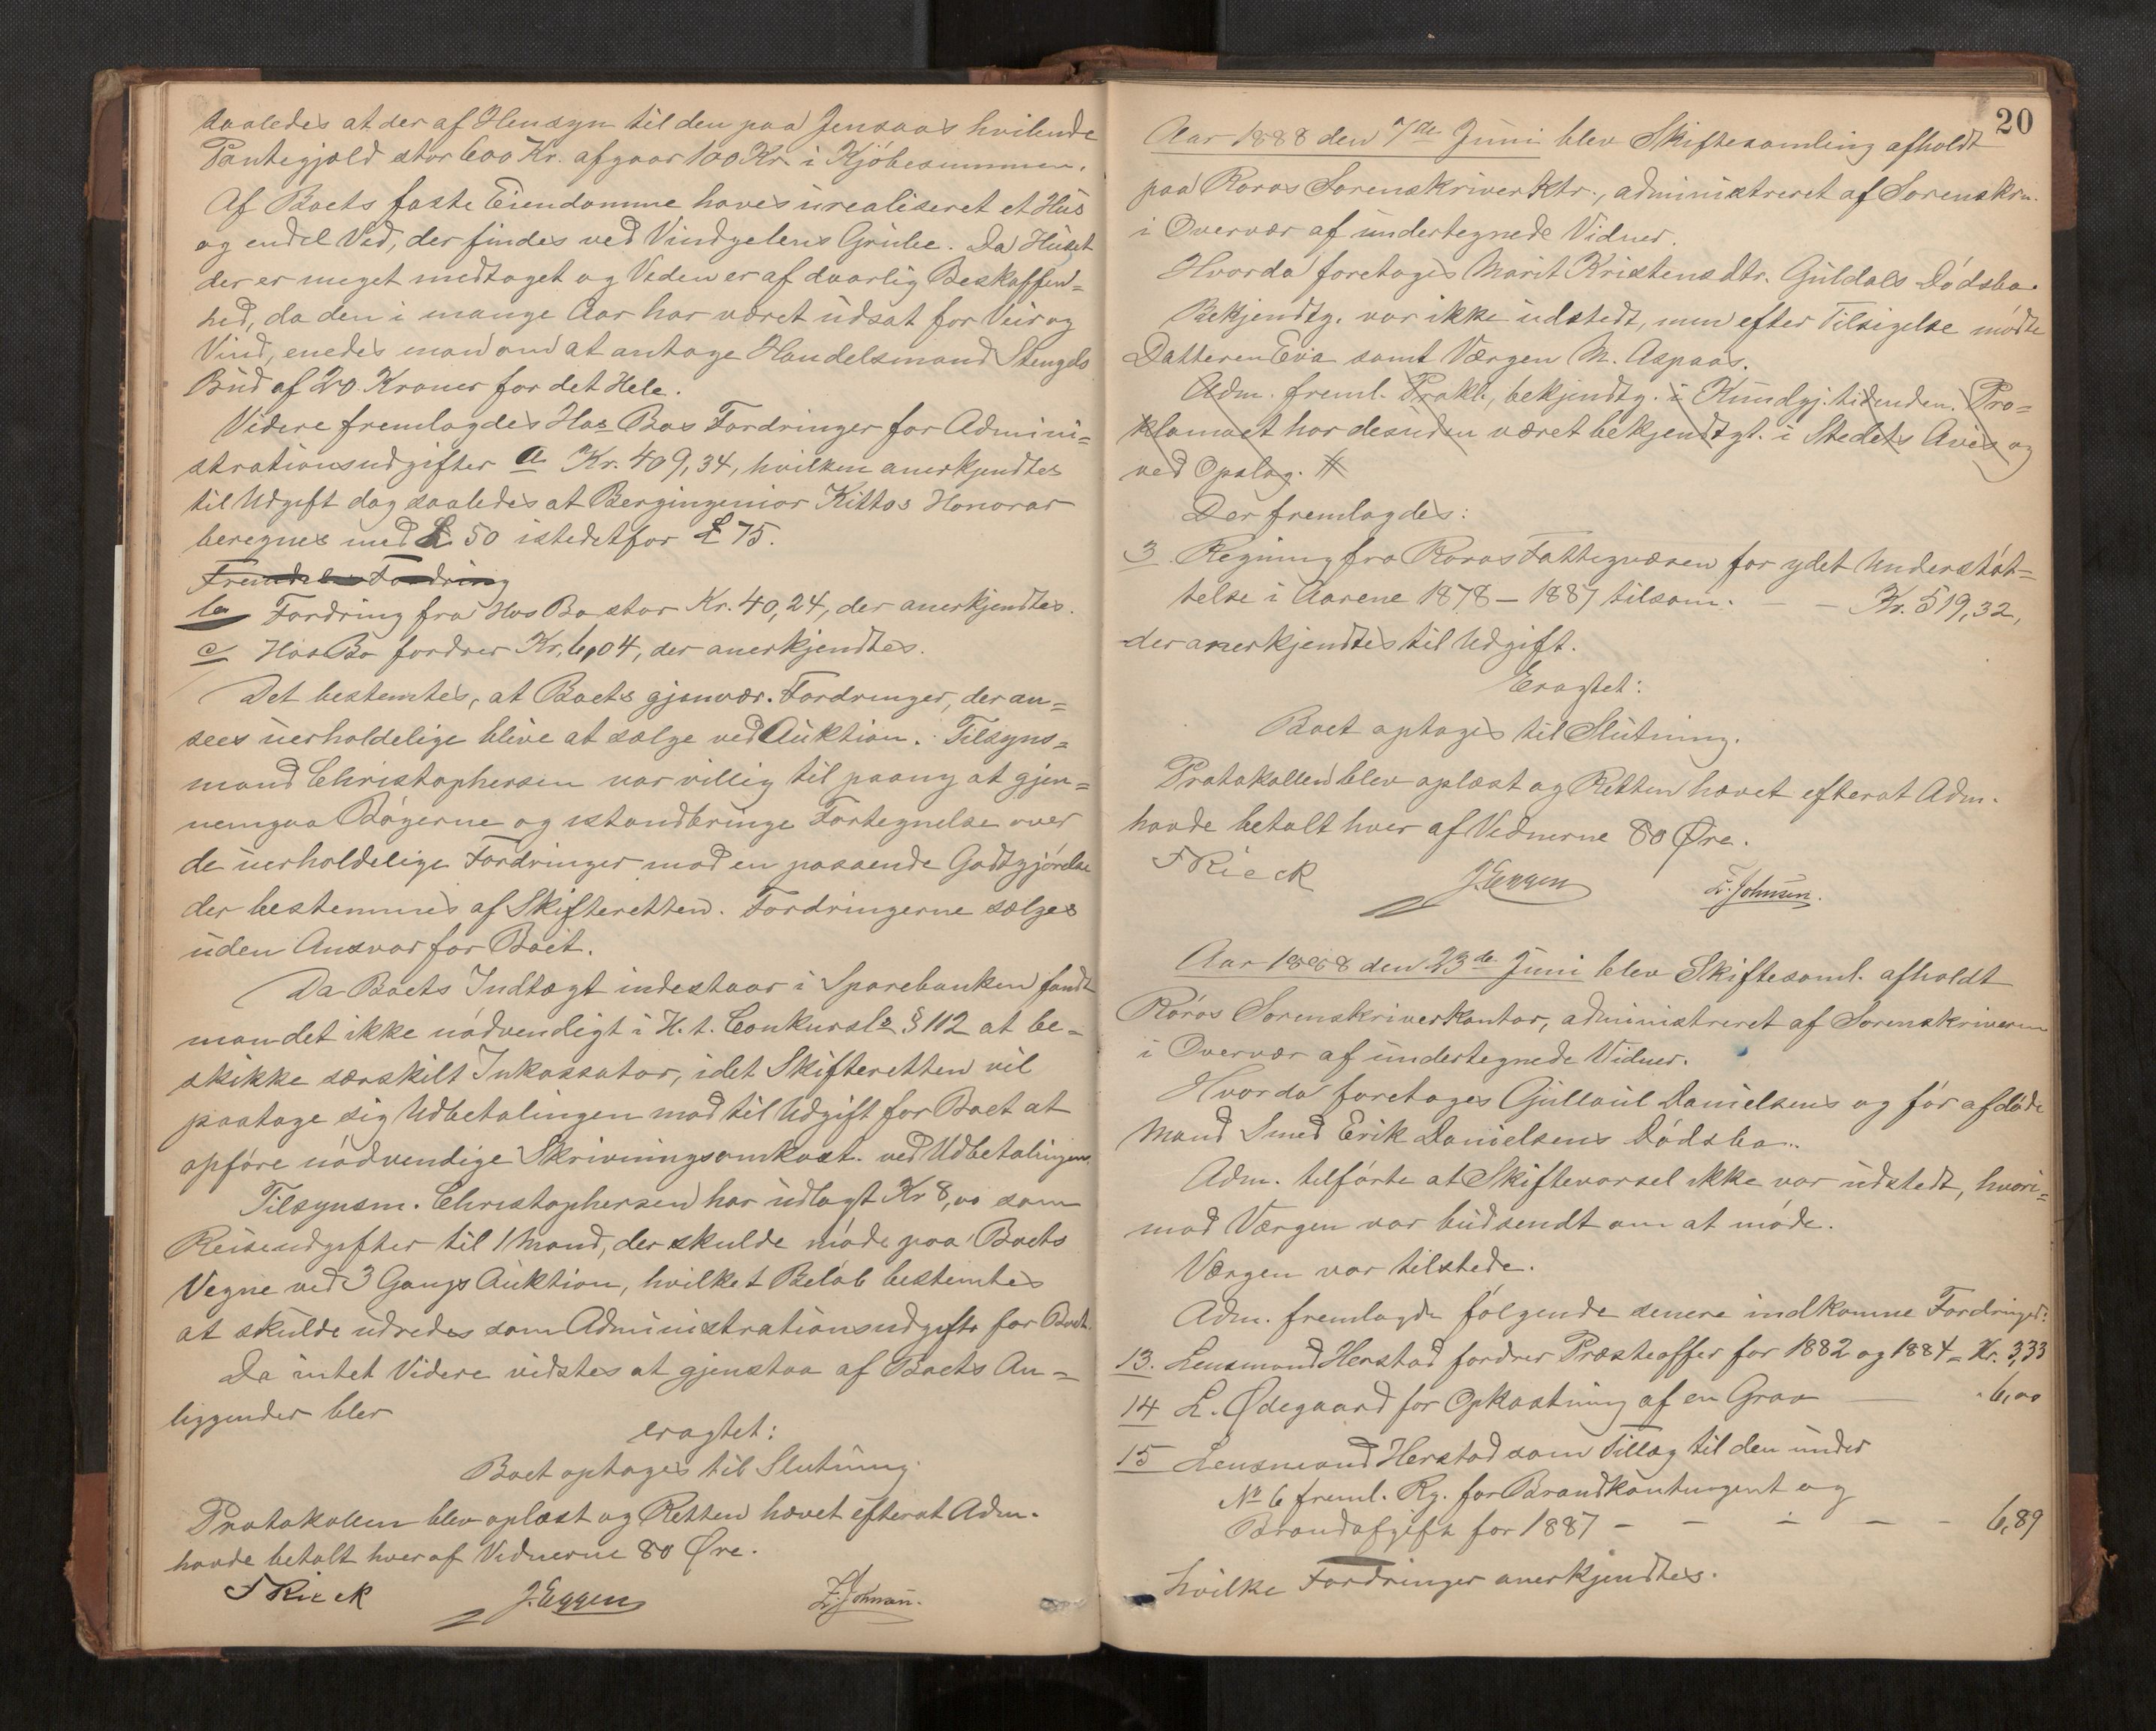 saaledes at der af Hensyn til den paa Jensaas hvilende
Pantegjæld stor 600 Kr. afgaar 100 Kr. i Kjøbesummen.
Af Boets faste Eiendomme haves urealiseret et Hus
og endel Ved, der findes ved Vindgelens Grube. Da Huset
der er meget medtaget og Veden er af daarlig Beskaffen=
hed, da den i mange Aar har været udsat for Veir og
Vind, enedes man om at antage Handelsmand Stengels
Bud af 20 Kroner for det Hele.
Videre fremlagdes Hos Bos Fordringer for Admini=
strationsudgifter a Kr. 409,34, hvilken anerkjendtes
til Udgift dog saaledes at Bergingeniør Kittos Honorar
beregnes med £ 50 istedetfor £ 75.
Fordring
b Fordring fra Hos Bo stor Kr. 40,24, der anerkjendtes.
c/ Hos Bo fordrer Kr. 6,04, der anerkjendtes.
Det bestemtes, at Boets gjenvær. Fordringer, der an=
sees uerholdelige blive at sælge ved Auktion. Tilsyns=
mand Christophersen var villig til paany at gjen=
nemgaa Bøgerne og istandbringe Fortegnelse over
de uerholdelige Fordringer mod en passende Godtgjørelse
der bestemmes af Skifteretten. Fordringerne sælges
uden Ansvar for Boet.
Da Boets Indtægt indestaar i Sparebanken fandt
man det ikke nødvendigt i H. t. Conkursls § 112 at be=
skikke særskilt Inkassator, idet Skifteretten vil
paatage sig Udbetalingen mod til Udgift for Boet at
opføre nødvendige Skrivningsomkost. ved Udbetalingen.
Tilsynsm. Christophersen har udlagt Kr 8,00 som
Reiseudgifter til 1 Mand, der skulde møde paa Boets
Vegne ved 3 Gangs Auktion, hvilket Beløb bestemtes
at skulde udredes som Administrationsudgifts for Boet.
Da intet Videre vidstes at gjenstaa af Boets An=
liggender blev
eragtet:
Boet optages til Slutning.
Protokollen blev oplæst og Retten hævet efterat Adm.
havde betalt hver af Vidnerne 80 Øre.
F Rieck J. Eggen L. Johnsen.
20
Aar 1888 den 7de Juni blev Skiftesamling afholdt
paa Røros Sorenskriverktr., administreret af Sorenskrn.
i Overvær af undertegnede Vidner.
Hvorda foretoges Marit Kristensdtr. Guldals Dødsbo.
Bekjendtg. var ikke udstedt, men efter Tilsigelse mødte
Datteren Eva samt Værgen M. Aspaas.
Adm. freml. Prokl., bekjendtg. i Kundgj.tidenden. Pro=
klamaet har desuden været bekjendtgt. i Stedets Avis og
ved Opslag.
Der fremlagdes:
3 Regning fra Røros Fattigvæsen for ydet Understøt=
telse i Aarene 1878 – 1887 tilsam. – – Kr. 519,32,
der anerkjendtes til Udgift.
Eragtet:
Boet optages til Slutning.
Protokollen blev oplæst og Retten hævet efterat Adm.
havde betalt hver af Vidnerne 80 Øre.
F Rieck J. Eggen L. Johnsen.
Aar 1888 den 23de Juni blev Skiftesaml. afholdt
Røros Sorenskriverkontor, administreret af Sorenskriveren
i Overvær af undertegnede Vidner.
Hvorda foretoges Gullaul Danielsens og før afdøde
Mand Smed Erik Danielsens Dødsbo.
Adm. tilførte at Skiftevarsel ikke var udstedt, hvori=
mod Værgen var budsendt om at møde.
Værgen var tilstede.
Adm. fremlagde følgende senere indkomne Fordringer:
13. Lensmand Herstad fordrer Præsteoffer for 1882 og 1884 = Kr. 3,33
14 L. Ødegaard for Opkastning af en Grav — " 6,00
15 Lensmand Herstad som Tillæg til den under
No 6 freml. Rg. for Brandkontingent og
Brandafgift for 1887 – – – – – 6,89
hvilke Fordringer anerkjendtes.